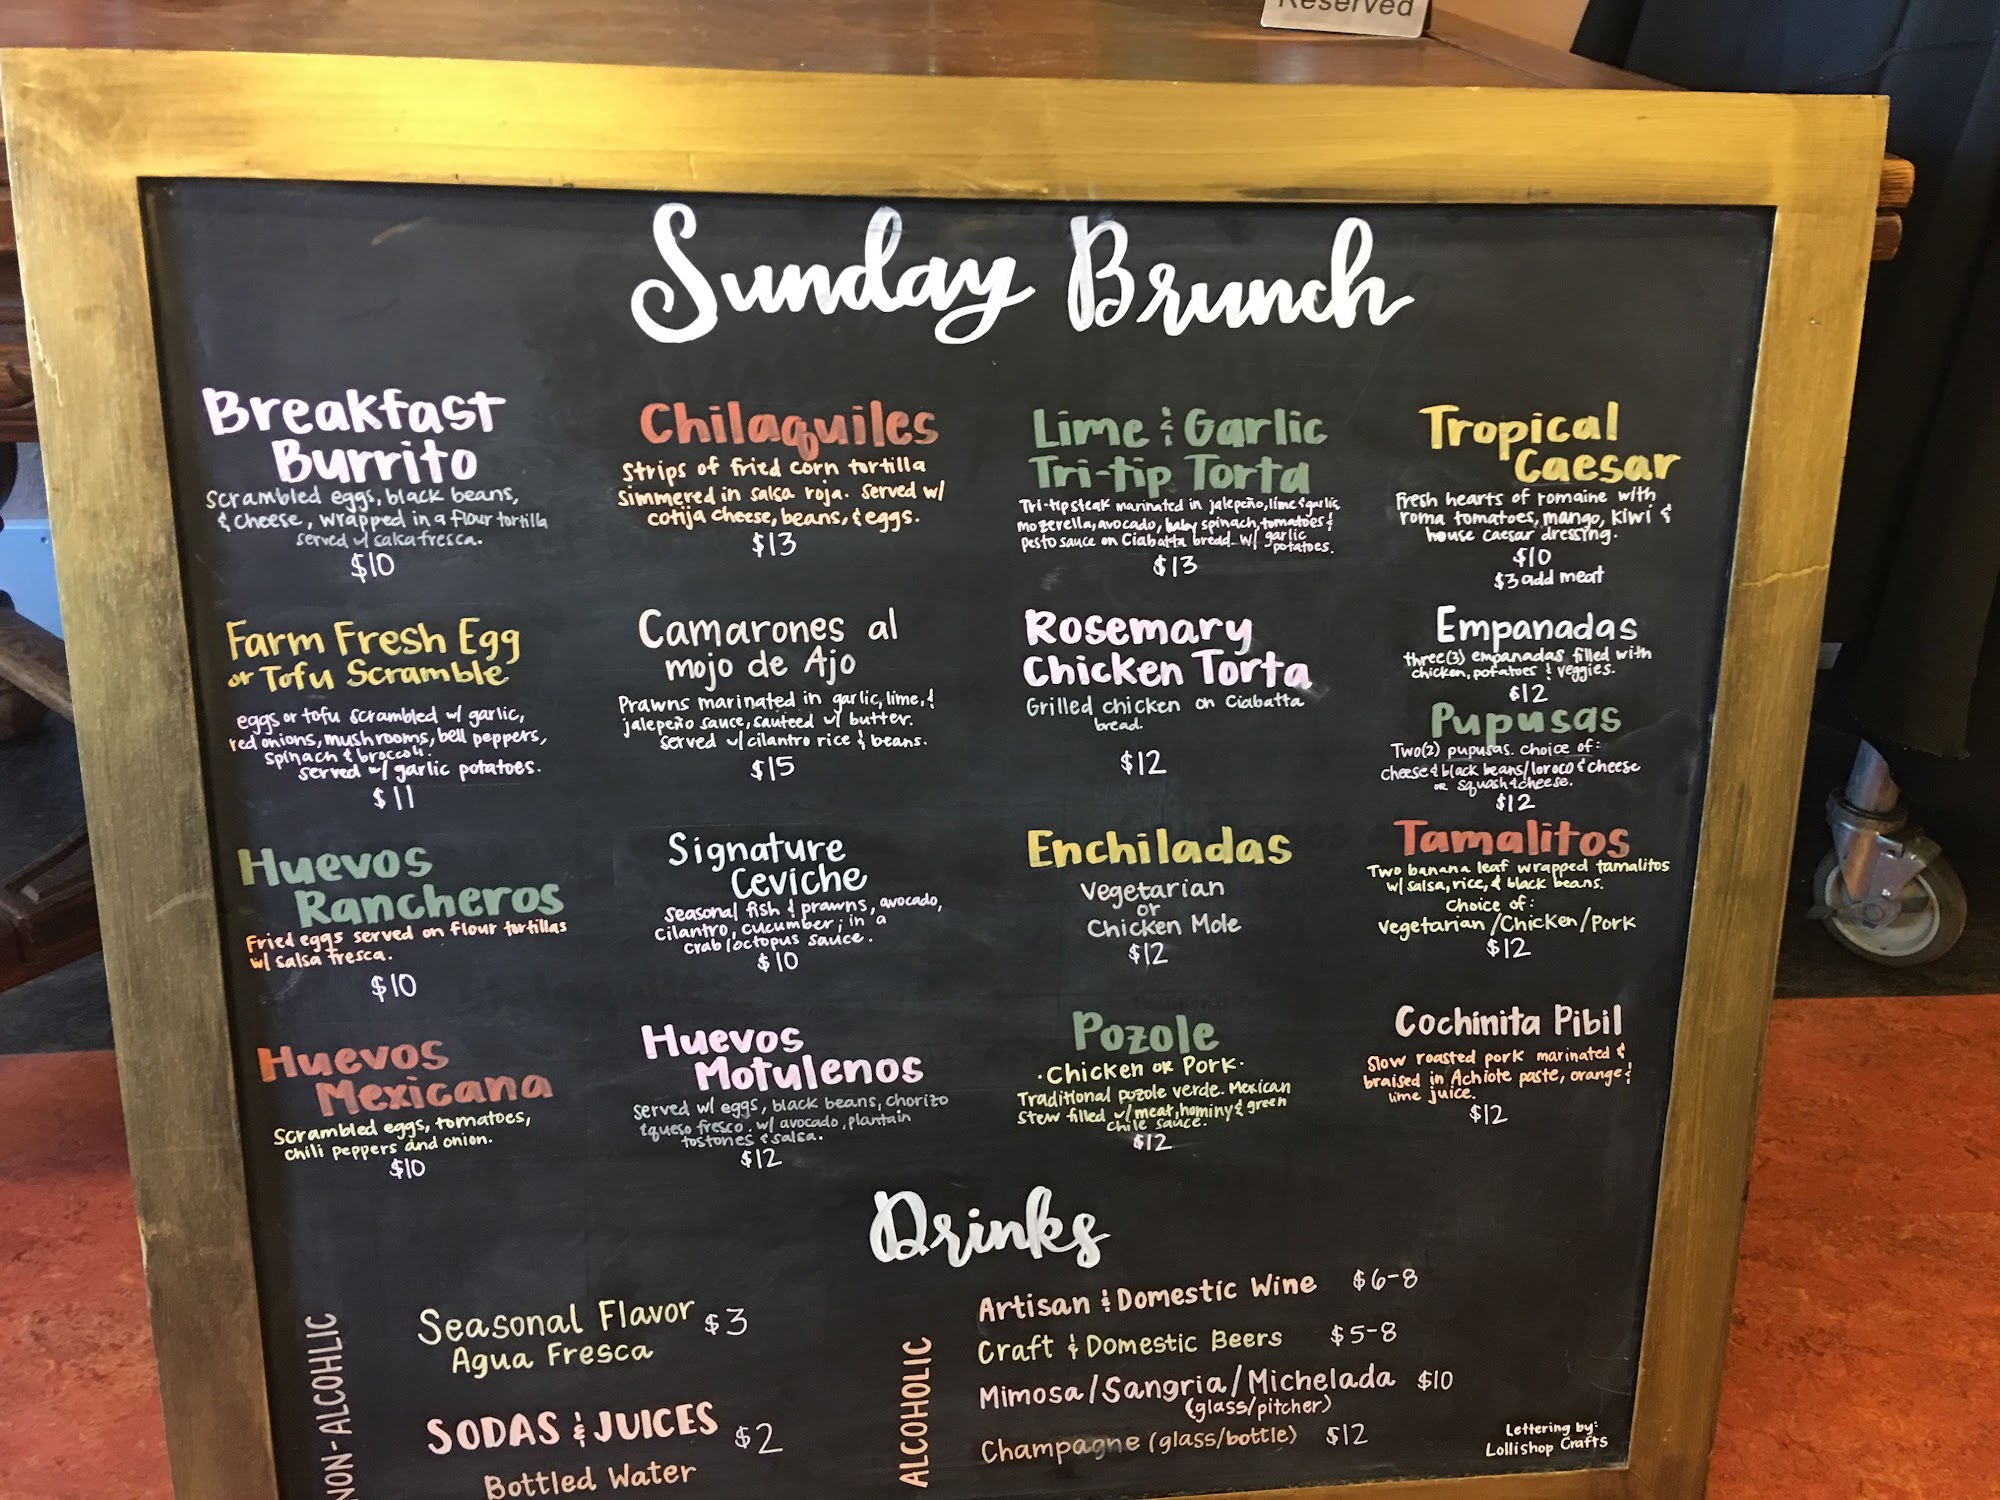 Reserved
Sunday Brunch
Breakfast
Burrito
Scrambled eggs, black beans,
& cheese, wrapped in a flour tortilla
served w/ salsa fresca.
$10
Farm Fresh Egg
or Tofu Scramble
eggs or tofu scrambled w/ garlic,
red onions, mushrooms, bell peppers,
spinach & broccoli.
served w/ garlic potatoes.
$11
Huevos
Rancheros
Fried eggs served on flour tortillas
w/ salsa fresca.
$10
Huevos
Mexicana
Scrambled eggs, tomatoes,
chili peppers and onion.
$10
Chilaquiles
Strips of fried corn tortilla
simmered in salsa roja. Served w/
cotija cheese, beans, & eggs.
$13
Camarones al
mojo de Ajo
Prawns marinated in garlic, lime, &
jalepeño sauce, sauteed w/ butter.
served w/ cilantro rice & beans.
$15
Signature
Ceviche
Seasonal fish & prawns, avocado,
cilantro, cucumber; in a
crab/octopus sauce.
$10
Huevos
Motulenos
served w/ eggs, black beans, chorizo
& queso fresco. w/ avocado, plantain
tostones & salsa.
$12
Lime & Garlic
Tri-tip Torta
Tri-tip steak marinated in jalepeño, lime & garlic,
mozerella, avocado, baby spinach, tomatoes &
pesto sauce on Ciabatta bread. w/ garlic
potatoes.
$13
Rosemary
Chicken Torta
Grilled chicken on Ciabatta
bread.
$12
Enchiladas
Vegetarian
or
Chicken Mole
$12
Pozole
·Chicken or Pork·
Traditional pozole verde. Mexican
Stew filled w/ meat, hominy & green
chile sauce.
$12
Tropical
Caesar
Fresh hearts of romaine with
roma tomatoes, mango, kiwi &
house caesar dressing.
$10
$3 add meat
Empanadas
three(3) empanadas filled with
chicken, potatoes & veggies.
$12
Pupusas
Two(2) pupusas. choice of:
cheese & black beans/loroco & cheese
or squash & cheese.
$12
Tamalitos
Two banana leaf wrapped tamalitos
w/ salsa, rice, & black beans.
Choice of:
Vegetarian/Chicken/Pork
$12
Cochinita Pibil
Slow roasted pork marinated &
braised in Achiote paste, orange &
lime juice.
$12
Drinks
NON-ALCOHLIC
Seasonal Flavor $3
Agua Fresca
SODAS & JUICES $2
Bottled Water
ALCOHOLIC
Artisan & Domestic Wine $6-8
Craft & Domestic Beers $5-8
Mimosa/Sangria/Michelada $10
(glass/pitcher)
Champagne (glass/bottle) $12
Lettering by:
Lollishop Crafts